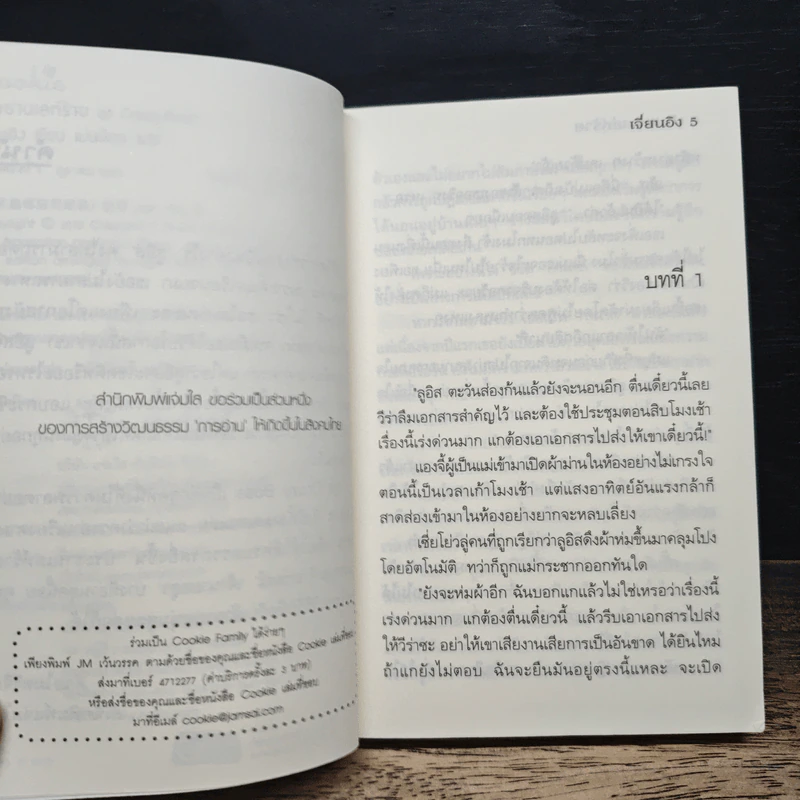 สำนักพิมพ์แจ่มใส ขอร่วมเป็นส่วนหนึ่ง
ของการสร้างวัฒนธรรม 'การอ่าน' ให้เกิดขึ้นในสังคมไทย
ร่วมเป็น Cookie Family ได้ง่ายๆ
เพียงพิมพ์ JM เว้นวรรค ตามด้วยชื่อของคุณและชื่อหนังสือ Cookie เล่มที่ชอบ
ส่งมาที่เบอร์ 4712277 (ค่าบริการครั้งละ 3 บาท)
หรือส่งชื่อของคุณและชื่อหนังสือ Cookie เล่มที่ชอบ
มาที่อีเมล์ cookie@jamsai.com
เจี่ยนอิง 5
บทที่ 1
"ลูอิส ตะวันส่องก้นแล้วยังจะนอนอีก ตื่นเดี๋ยวนี้เลย
วีร่าลืมเอกสารสำคัญไว้ และต้องใช้ประชุมตอนสิบโมงเช้า
เรื่องนี้เร่งด่วนมาก แกต้องเอาเอกสารไปส่งให้เขาเดี๋ยวนี้!"
แองจี้ผู้เป็นแม่เข้ามาเปิดผ้าม่านในห้องอย่างไม่เกรงใจ
ตอนนี้เป็นเวลาเก้าโมงเช้า แต่แสงอาทิตย์อันแรงกล้าก็
สาดส่องเข้ามาในห้องอย่างยากจะหลบเลี่ยง
เซี่ยโย่วลู่คนที่ถูกเรียกว่าลูอิสดึงผ้าห่มขึ้นมาคลุมโปง
โดยอัตโนมัติ ทว่าก็ถูกแม่กระชากออกทันใด
"ยังจะห่มผ้าอีก ฉันบอกแกแล้วไม่ใช่เหรอว่าเรื่องนี้
เร่งด่วนมาก แกต้องตื่นเดี๋ยวนี้ แล้วรีบเอาเอกสารไปส่ง
ให้วีร่าซะ อย่าให้เขาเสียงานเสียการเป็นอันขาด ได้ยินไหม
ถ้าแกยังไม่ตอบ ฉันจะยืนมันอยู่ตรงนี้แหละ จะเปิด